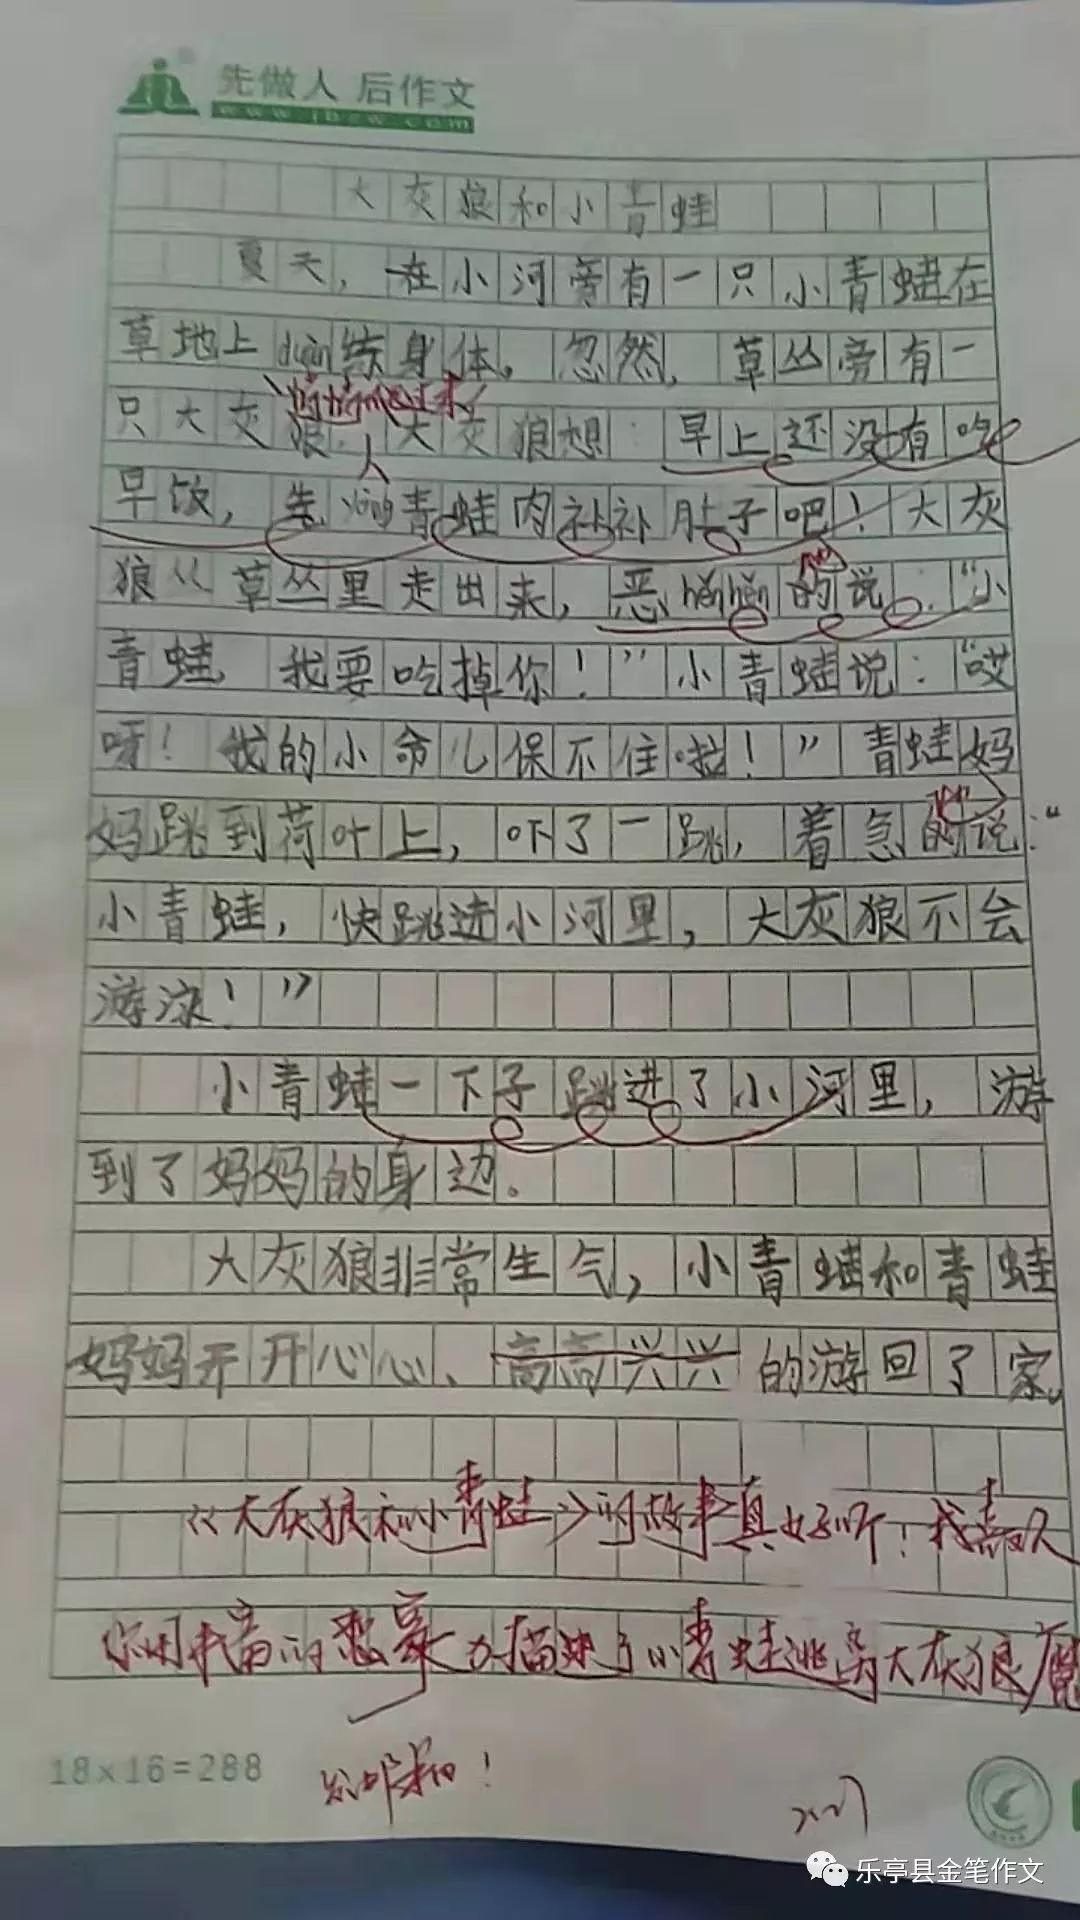 先做人 后作文
www.jbzw.com
大灰狼和小青蛙
夏天，在小河旁有一只小青蛙在
草地上duàn练身体。忽然，草丛旁有一
只大灰狼。大灰狼想：早上还没有吃
早饭，先 青蛙肉补补肚子吧！大灰
狼从草丛里走出来，恶hěnhěn的说：“小
青蛙 我要吃掉你！”小青蛙说：“哎
呀！我的小命儿保不住啦！”青蛙妈
妈跳到荷叶上，吓了一跳，着急的说：“
小青蛙，快跳进小河里，大灰狼不会
游泳！”
小青蛙一下子跳进了小河里，游
到了妈妈的身边。
大灰狼非常生气，小青蛙和青蛙
妈妈开开心心、高高兴兴的游回了家。
《大灰狼和小青蛙》的故事真好听！我喜欢
你用丰富的想象力描述了小青蛙逃离大灰狼魔
18×16=288
乐亭县金笔作文